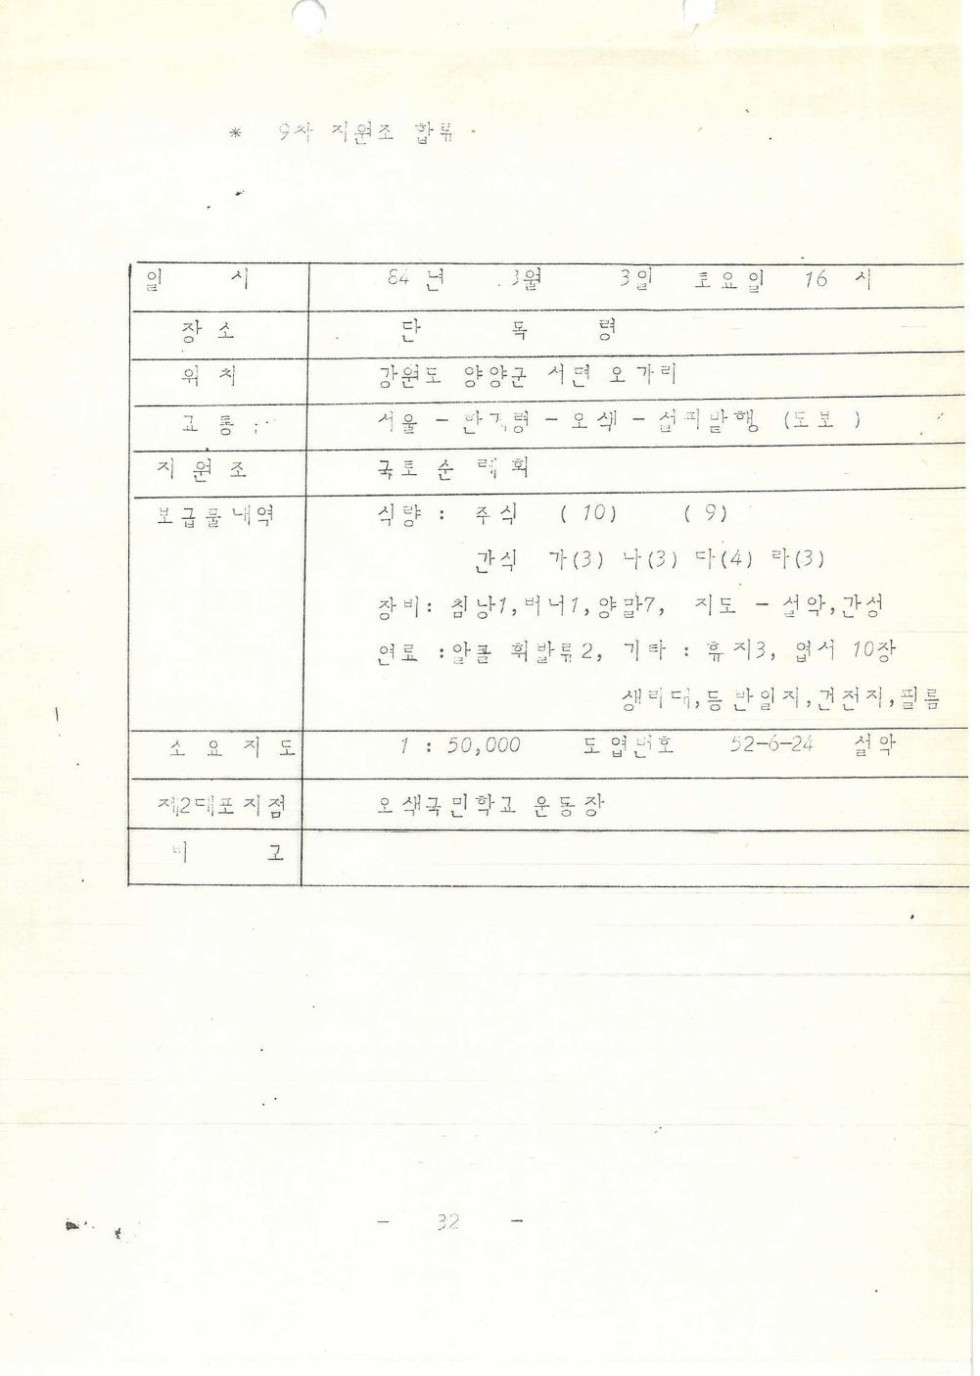 * 9차 지원조 합류
일 시 84년 3월 3일 토요일 16 시
장 소 단 목 령
위 치 강원도 양양군 서면 오가리
교 통 서울 - 한계령 - 오색 - 섭피밭행 (도보 )
지 원 조 국토 순 력회
보급물내역 식량 : 주식 ( 10) ( 9)
간식 가(3) 나(3) 다(4) 라(3)
장비: 침낭1,버너1,양말7, 지도 - 설악,간성
연료 :알콜 휘발류2, 기타 : 휴지3, 엽서 10장
생리대,등반일지,건전지,필름
소 요 지 도 1 : 50,000 도엽번호 52-6-24 설악
제2대포지점 오색국민학교 운동장
비 고
- 32 -